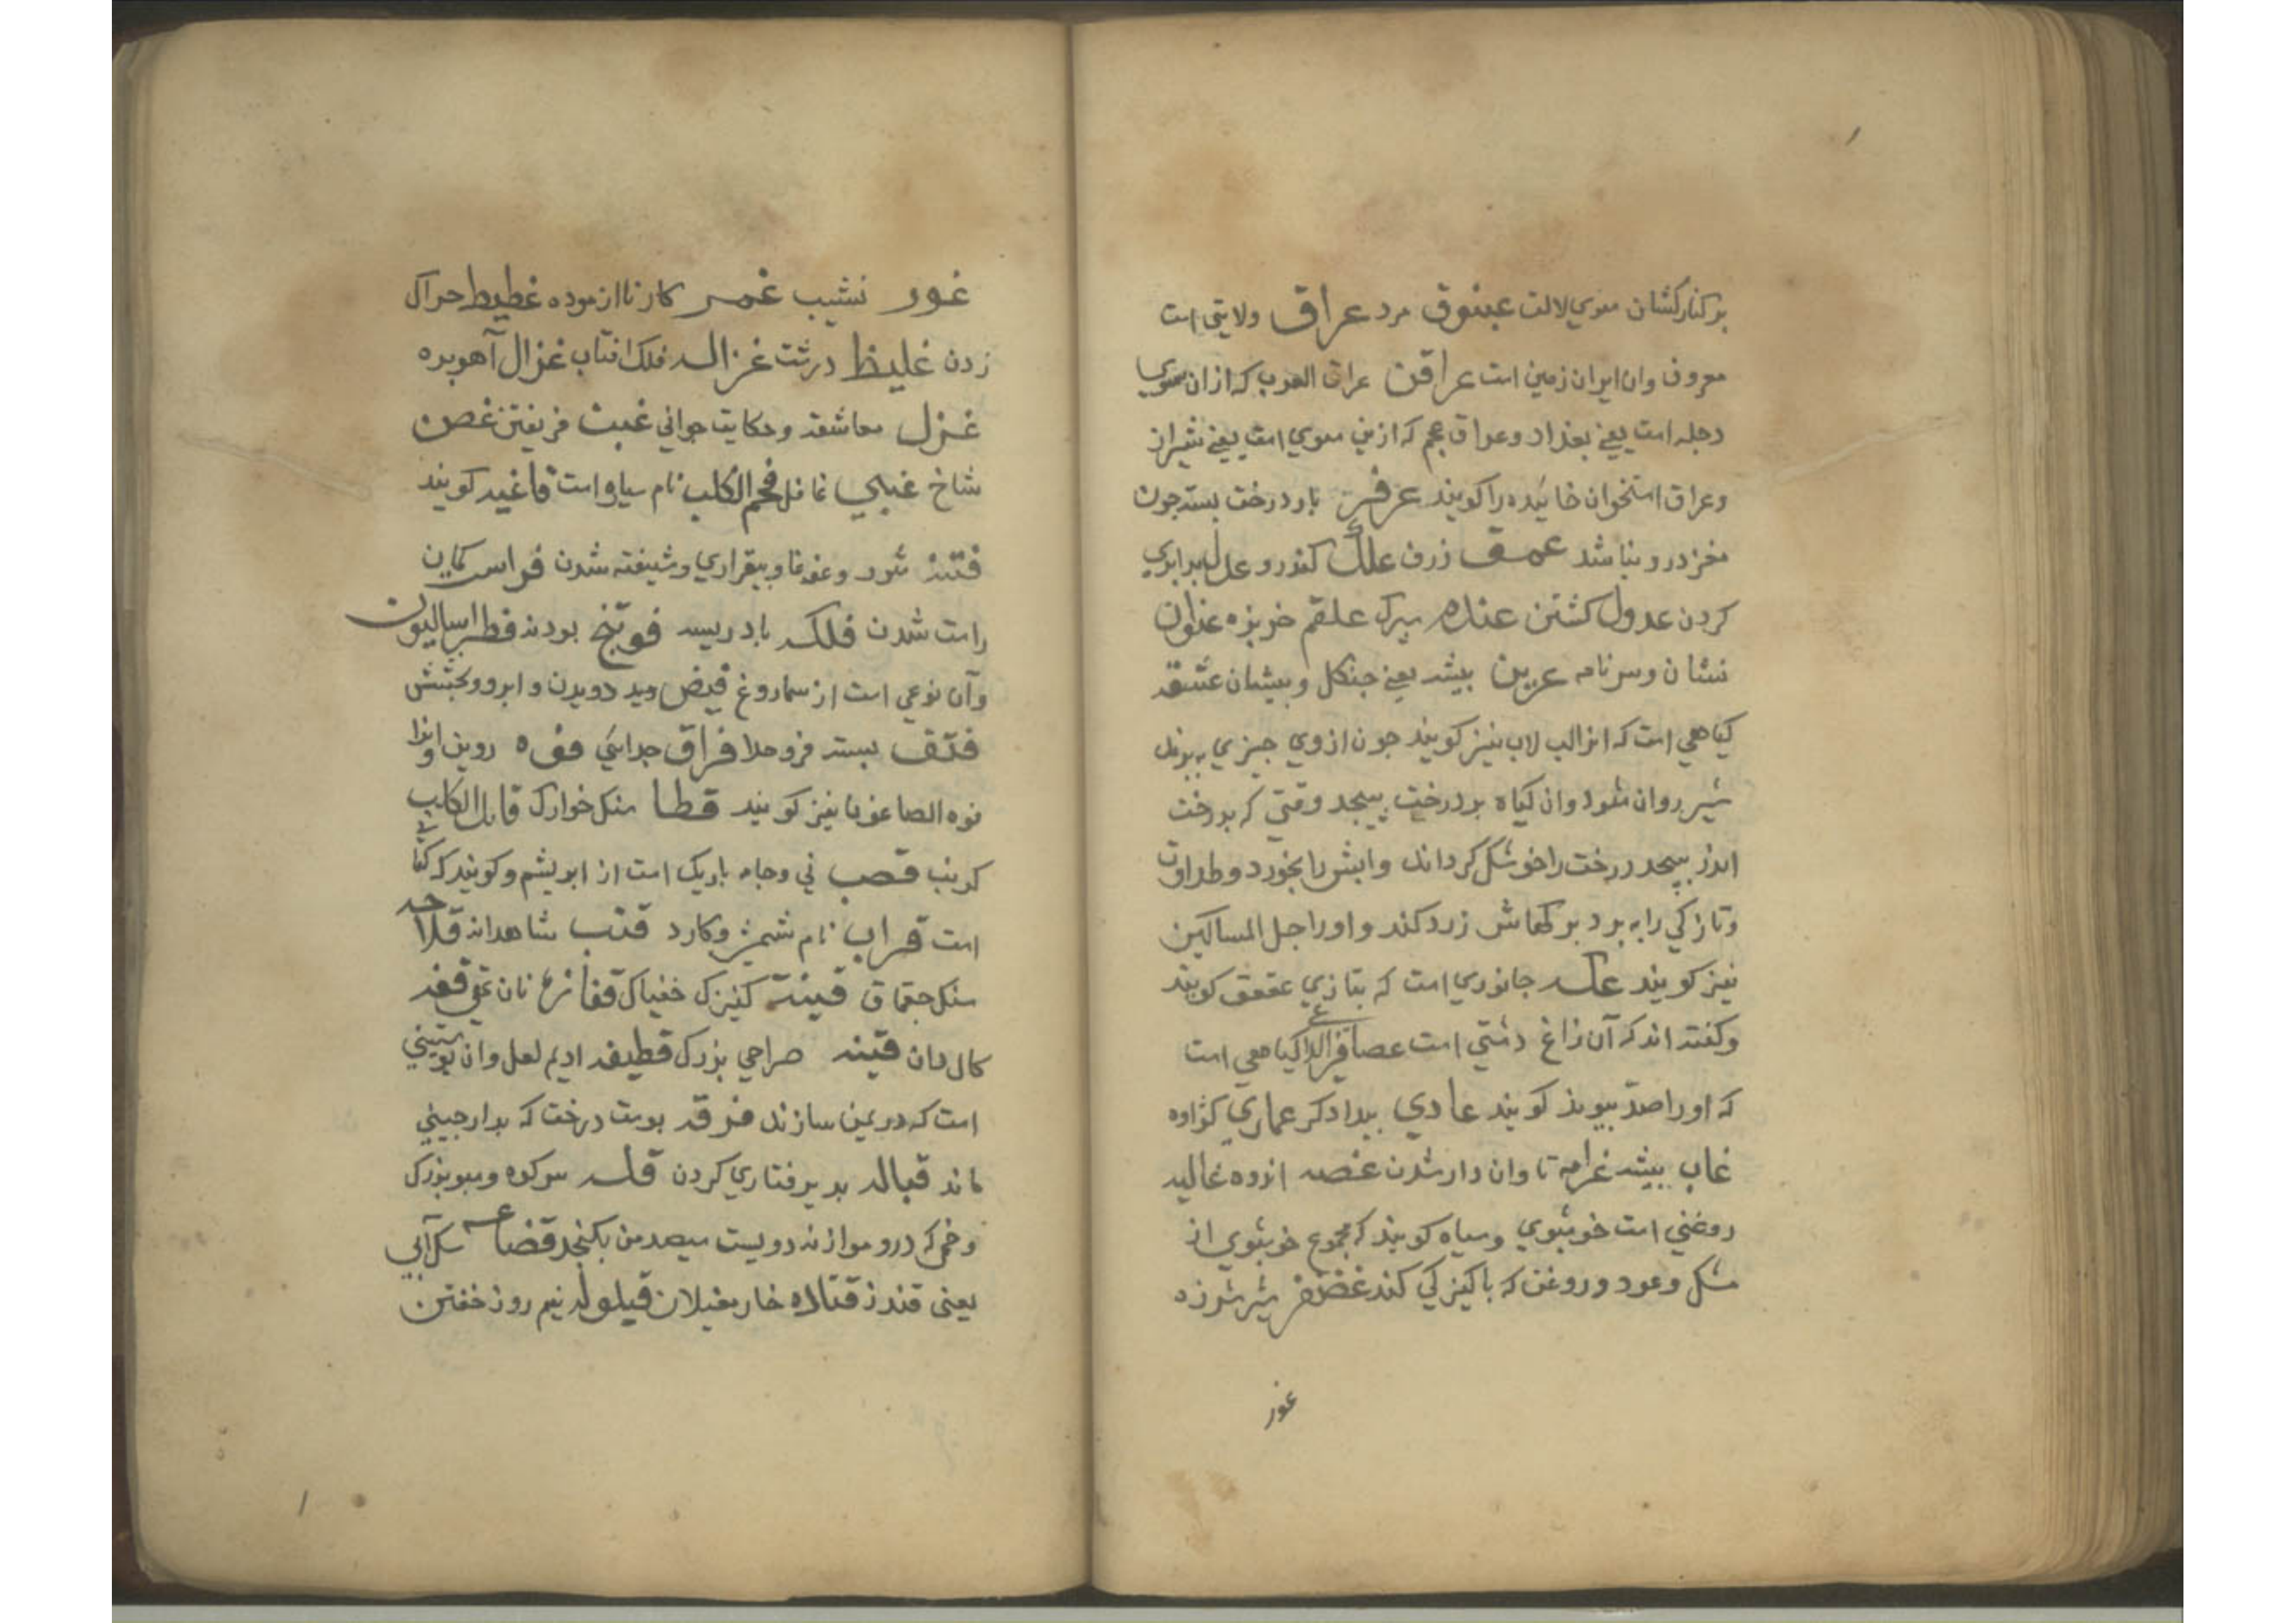 بر کنار کشان موی لالت عبنوق مرد عراق ولایتی است
معروف وان ایران زمین است عراقن عراق العرب که از ان سوی
دجله است یعنی بغداد وعراق عجم که ازین سوی است یعنی شیراز
وعراق استخوان خائیده را کویند بار درخت بسته جون
مغز درو نباشد عمق ژرف علک کندرو عدل برابری
کردن عدول کشتن علقم خربزه عنوان
نشان وسرنامه عرین بیشه یعنی جنکل وبیشان عشقه
کیاهی است که انرا لب لاب نیز کویند جون ازوی جیزی ببرند
شیر روان شود وان کیاه بر درخت بیجد وقتی که بر درخت
اندر بیجد درخت را خوشک کرداند وابش را بخورد وطراوت
وتازکی را ببرد برکهاش زرد کند واورا حبل المساکین
نیز کویند عکه جانوری است که بتازی عقعق کویند
وکفته اند که آن زاغ دشتی است عصا الراعی کیاهی است
که اورا صد بیوند کویند عادی بیدادکر عماری کژاوه
غاب بیشه غرامه تا وان دار شدن غصه اندوه غالیه
روغنی است خوشبوی وسیاه کویند که مجموع خوشبوی از
مشک وعود وروغن که باکیزکی کند غضنفر شیر شرزه
غور
غور نشیب غمر کار نا ازموده غطیط خراک
زدن غلیظ درشت غزاله فلک افتاب غزال آهوبره
غزل معاشقه وحکایت جوانی غبن فریفتن غصن
شاخ غبی غافل الکلب نام است فاغیه کویند
فتنه شور وغوغا وبیقراری وشیفته شدن فراست کمان
راست شدن فلکه بادریسه فوتنج بودنه فطراسالیون
وآن نوعی است از سماروغ فیض دویدن وابرو وبخشش
فتق بسته فراق جدائی فوه روین وانرا
فوه الصاغون نیز کویند قطا سنک خوارک قاتل الکلب
کرنب قصب نی وجامه باریک است از ابریشم وکویند که کتانی
است قراب نام شمشیر وکارد قنب شاهدانه قداحه
سنک جقماق قینه کنیزک خنیاک نان
کال دان قنینه صراحی بزرک قطیفه ادیم لعل وان بوستینی
است که در یمن سازند قرفه بوست درخت که بدارجینی
ماند قباله بدیرفتاری کردن قله سرکوه وسبو بزرک
وخمی که درو موازنه دویست سیصد من بکنجد قضاعه سک آبی
یعنی قندز قتاده خار مغیلان قیلوله نیم روز خفتن